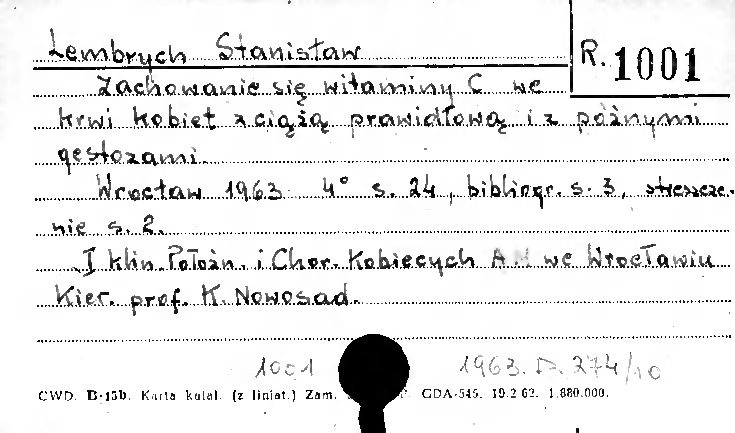 Lembrych Stanisław
R. 1001
Zachowanie się witaminy C we
krwi kobiet z ciążą prawidłową i z późnymi
gestozami.
Wrocław 1963 4° s. 24, bibliogr. s. 3, streszcze-
nie s. 2.
I Klin. Położn. i Chor. Kobiecych A.M we Wrocławiu
Kier. prof. K. Nowosad.
1001 1963. D. 274/10
CWD. B-15b. Karta katal. (z liniat.) Zam. GDA-545. 19.2 62. 1.880.000.